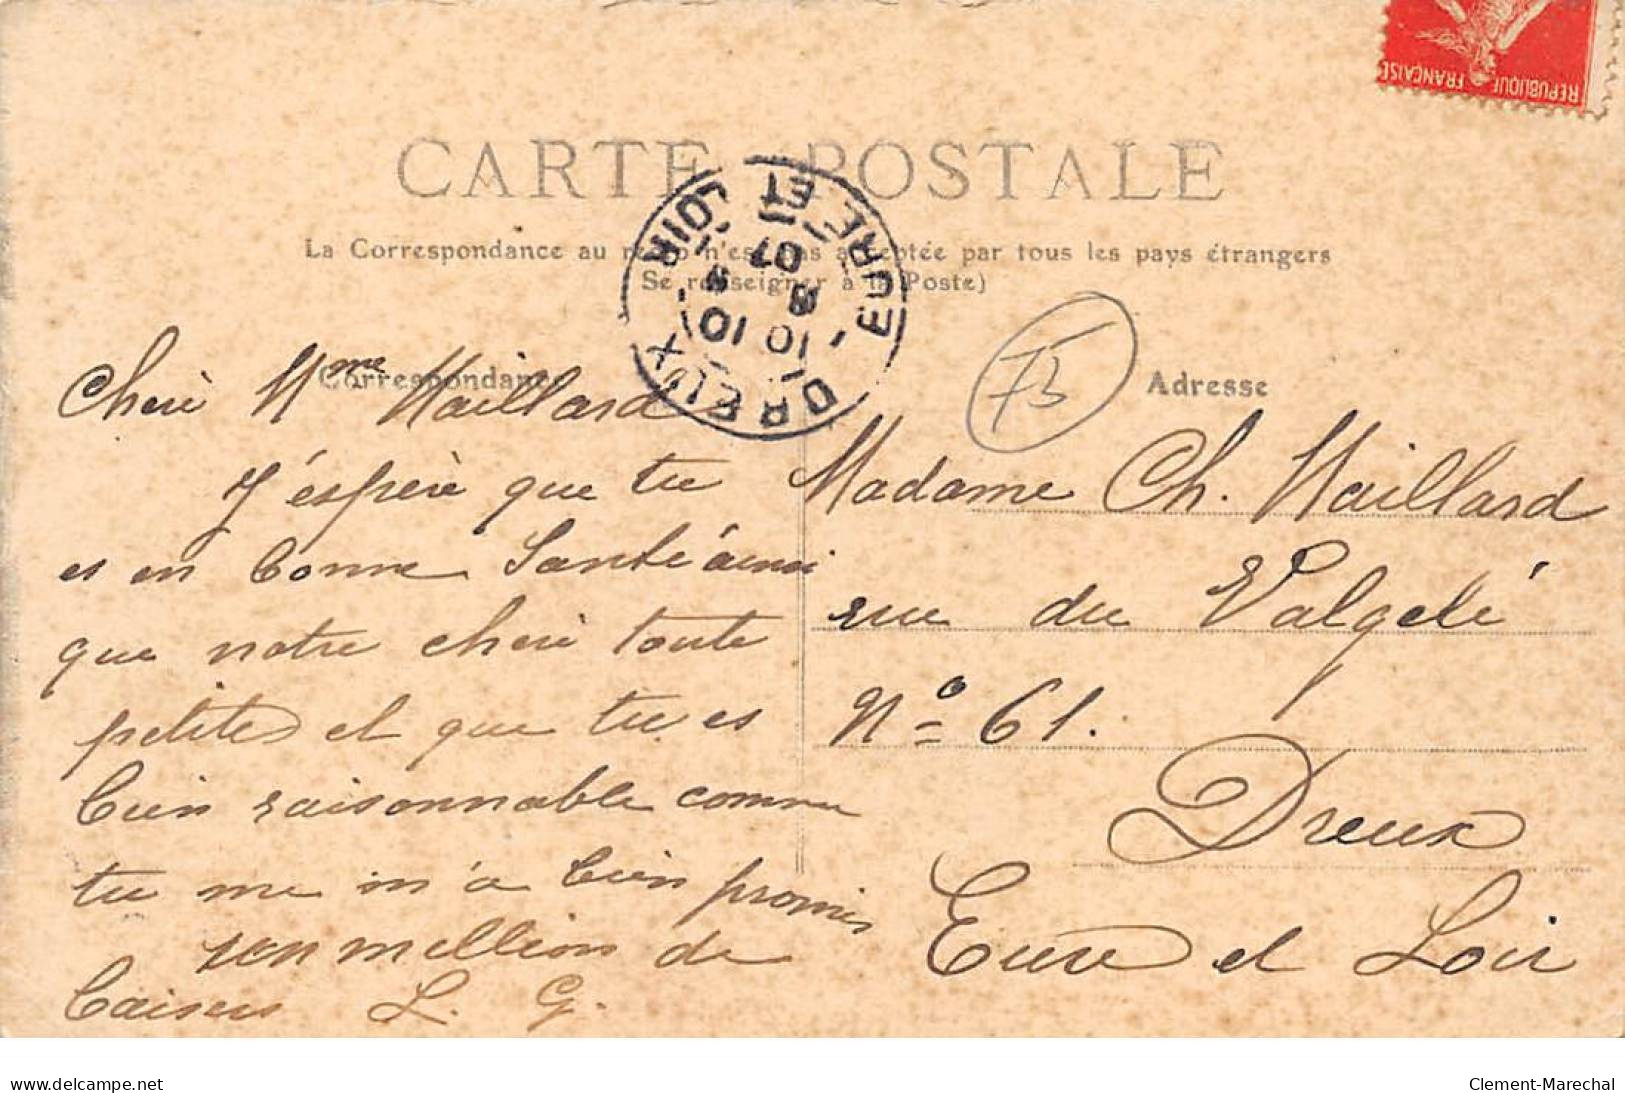 RÉPUBLIQUE FRANÇAISE
CARTE POSTALE
La Correspondance au recto n'est pas acceptée par tous les pays étrangers
Se renseigner à la Poste)
DREUX EURE ET LOIR
10 10
8 8
07
Correspondance
Adresse
75
Cheri Mme Maillard
J'éspère que tu
es en bonne Santé ainsi
que notre cheri toute
petites et que tu es
bien raisonnable comme
tu me m'a bien promis
un million de
Baisers L. G.
Madame Ch. Maillard
rue du Valgelé
No 61.
Dreux
Eure et Loir
www.delcampe.net
Clement-Marechal